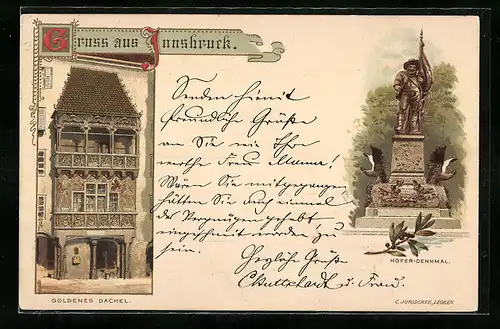 Gruss aus Innsbruck.
Senden hiemit
freundliche Grüße
an Sie wie Ihre
werthe Frau Mama!
Wären Sie mitgegangen
hätten Sie auch einmal
das Vergnügen gehabt
eingeschneit worden zu
sein.
Herzliche Grüße
u. Frau.
GOLDENES DACHEL.
HOFER-DENKMAL.
C. JURISCHEK, LEOBEN